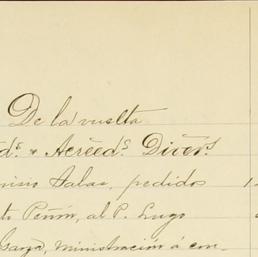 De la vuelta
d.s & Acréed.s Divers.s
Salas, pedidos
Peñón, al P. Lugo
Garza, ministración á con-